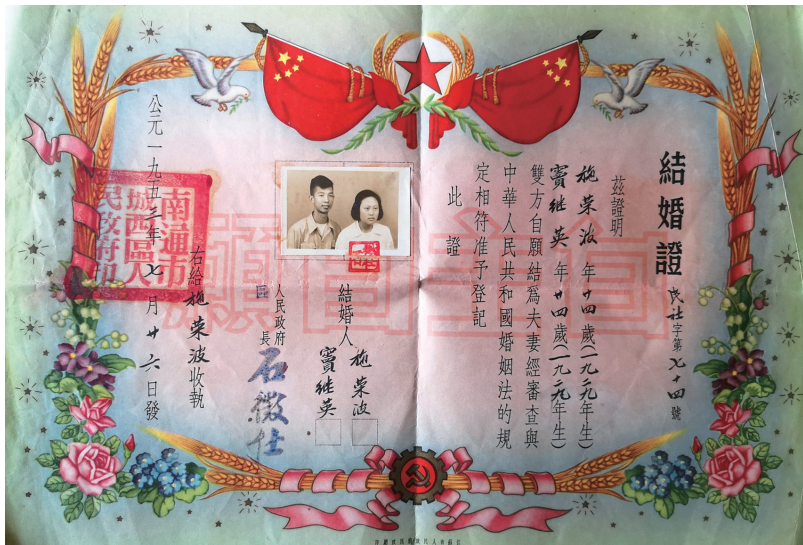 結婚證
民社字第七十四號
茲證明
施荣波年廿四歲(一九二九年生)
竇继英年廿四歲(一九二九年生)
雙方自願結爲夫妻經審查與
中華人民共和國婚姻法的規
定相符准予登記
此證
結婚人
施荣波
竇继英
人民政府
區長
右給施荣波收執
公元一九五三年七月廿六日發
南通市
城西區人
民政府印
自主自願